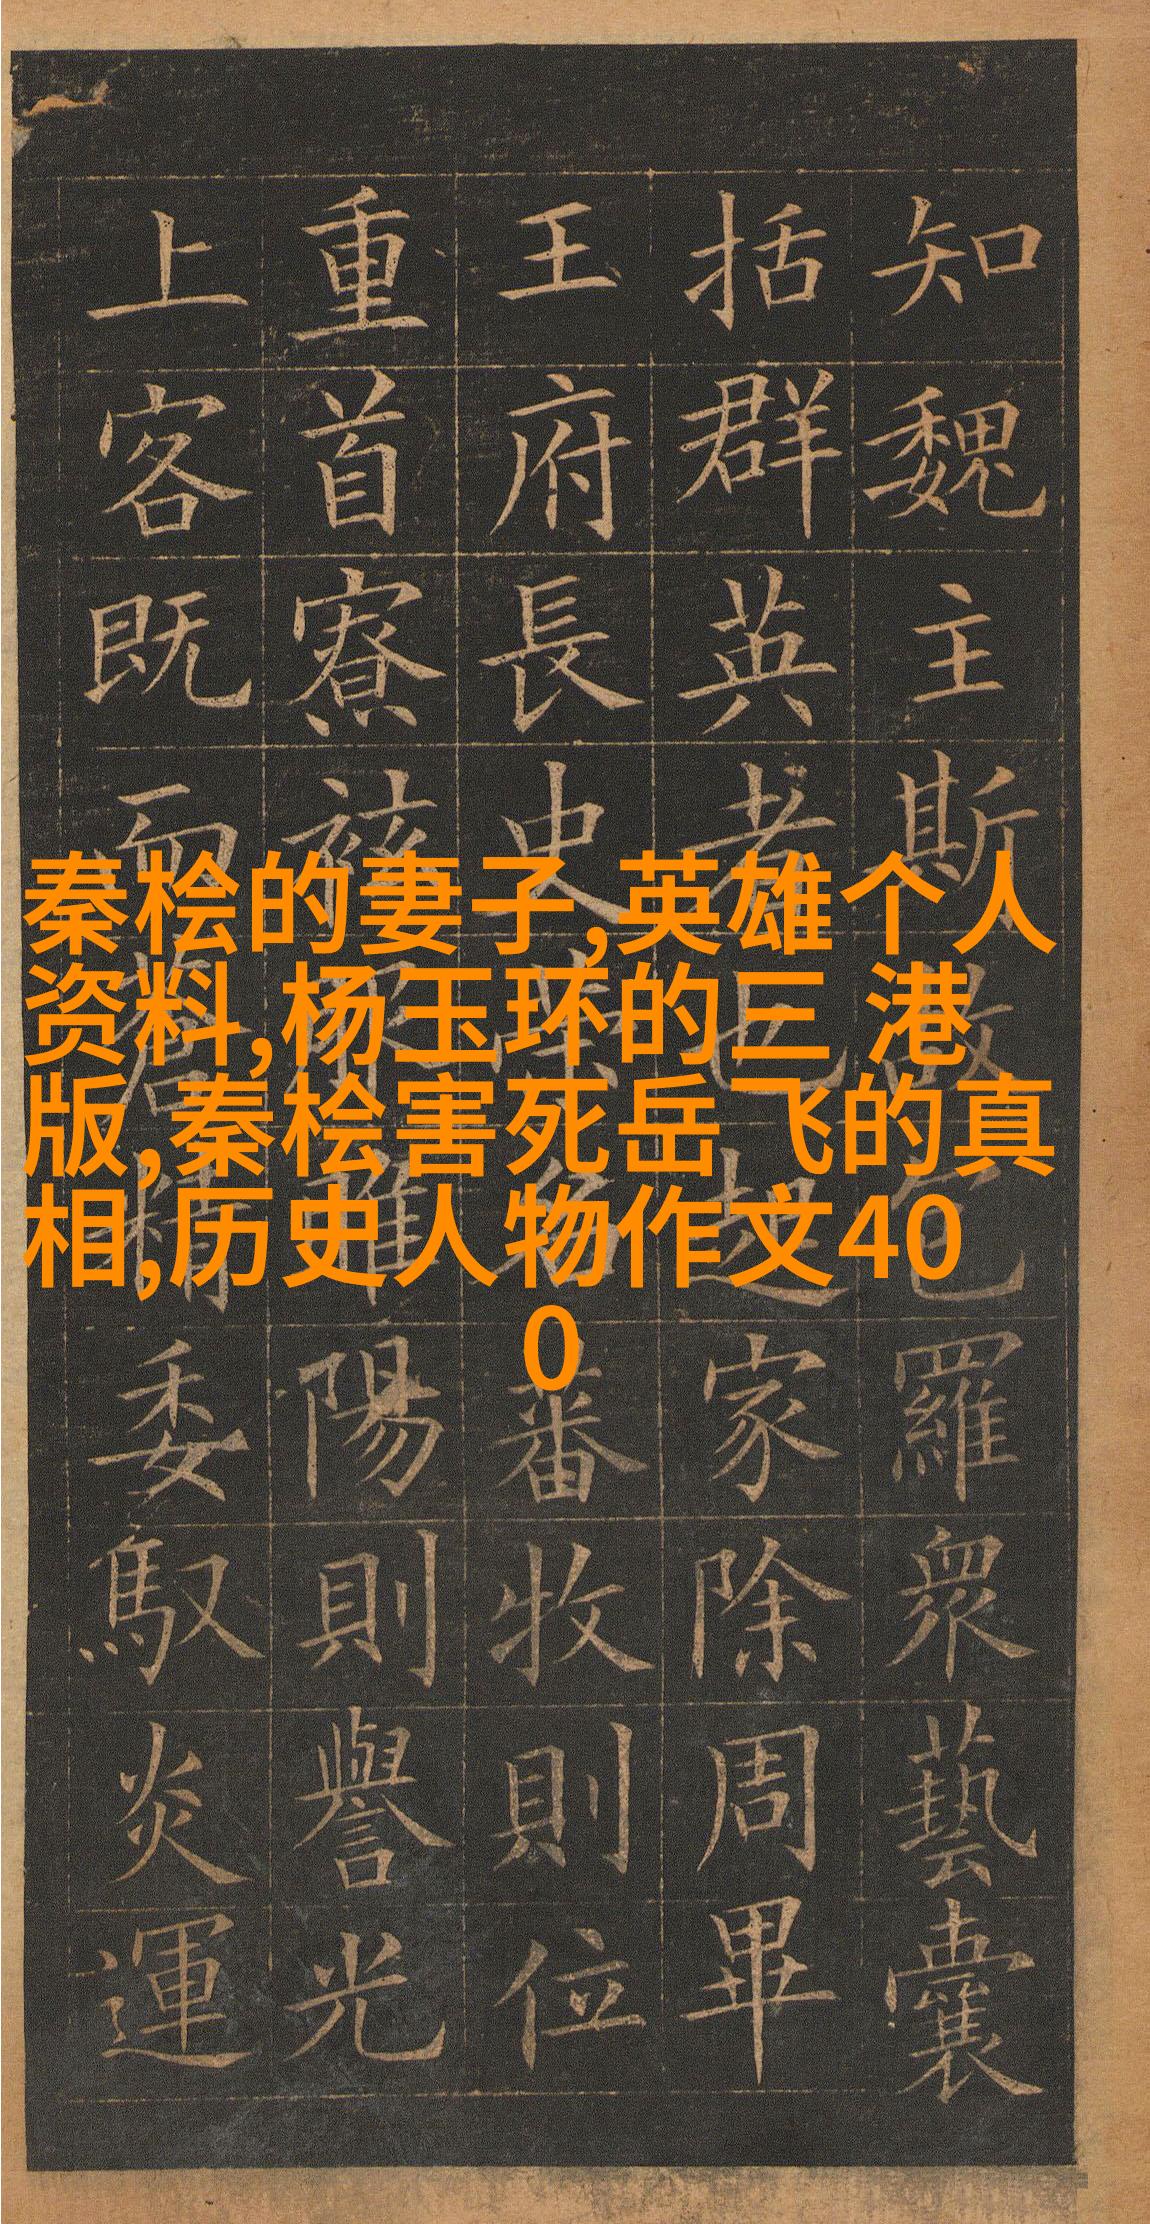 秦桧的妻子,英雄个人
资料,杨玉环的三 港
版,秦桧害死岳飞的真
相,历史人物作文40
0
知魏主斯故包羅眾藝囊
括群英者也起家除周畢
王府長史名蕃牧則位
重首寮陽則譽光
上客既而蒼精委馭炎運